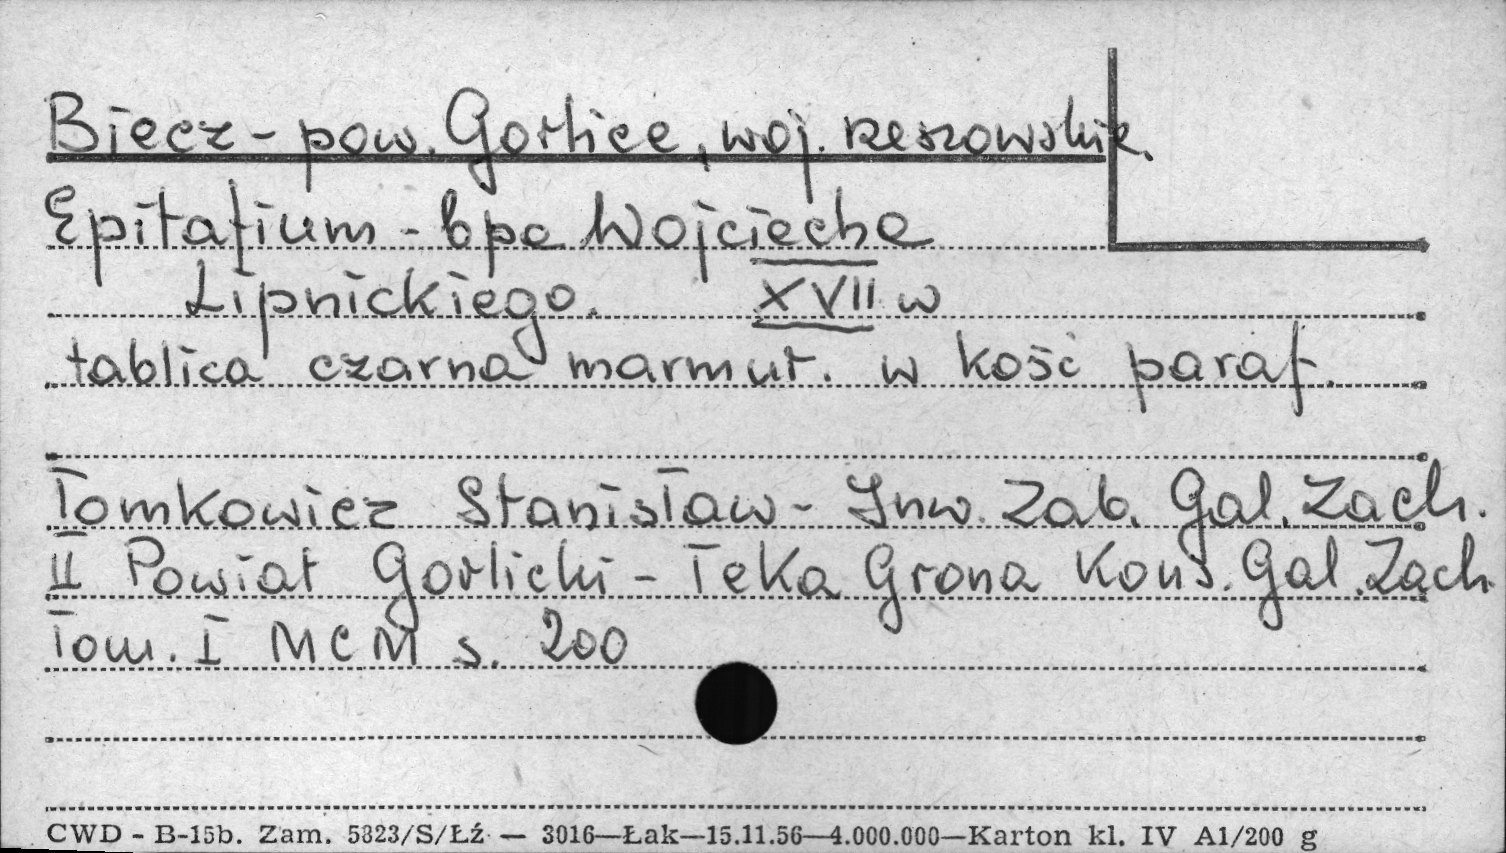 Biecz - pow. Gorlice, woj. rzeszowskie.
Epitafium - bpa Wojciecha
Lipnickiego. XVII w
tablica czarna marmur. w kość paraf.
Tomkowicz Stanisław - Inw. Zab. Gal. Zach.
II Powiat Gorlicki - Teka Grona Kons. Gal. Zach
Tom. I MCM s. 200
CWD - B-15b. Zam. 5823/S/Łź — 3016—Łak—15.11.56—4.000.000—Karton kl. IV A1/200 g